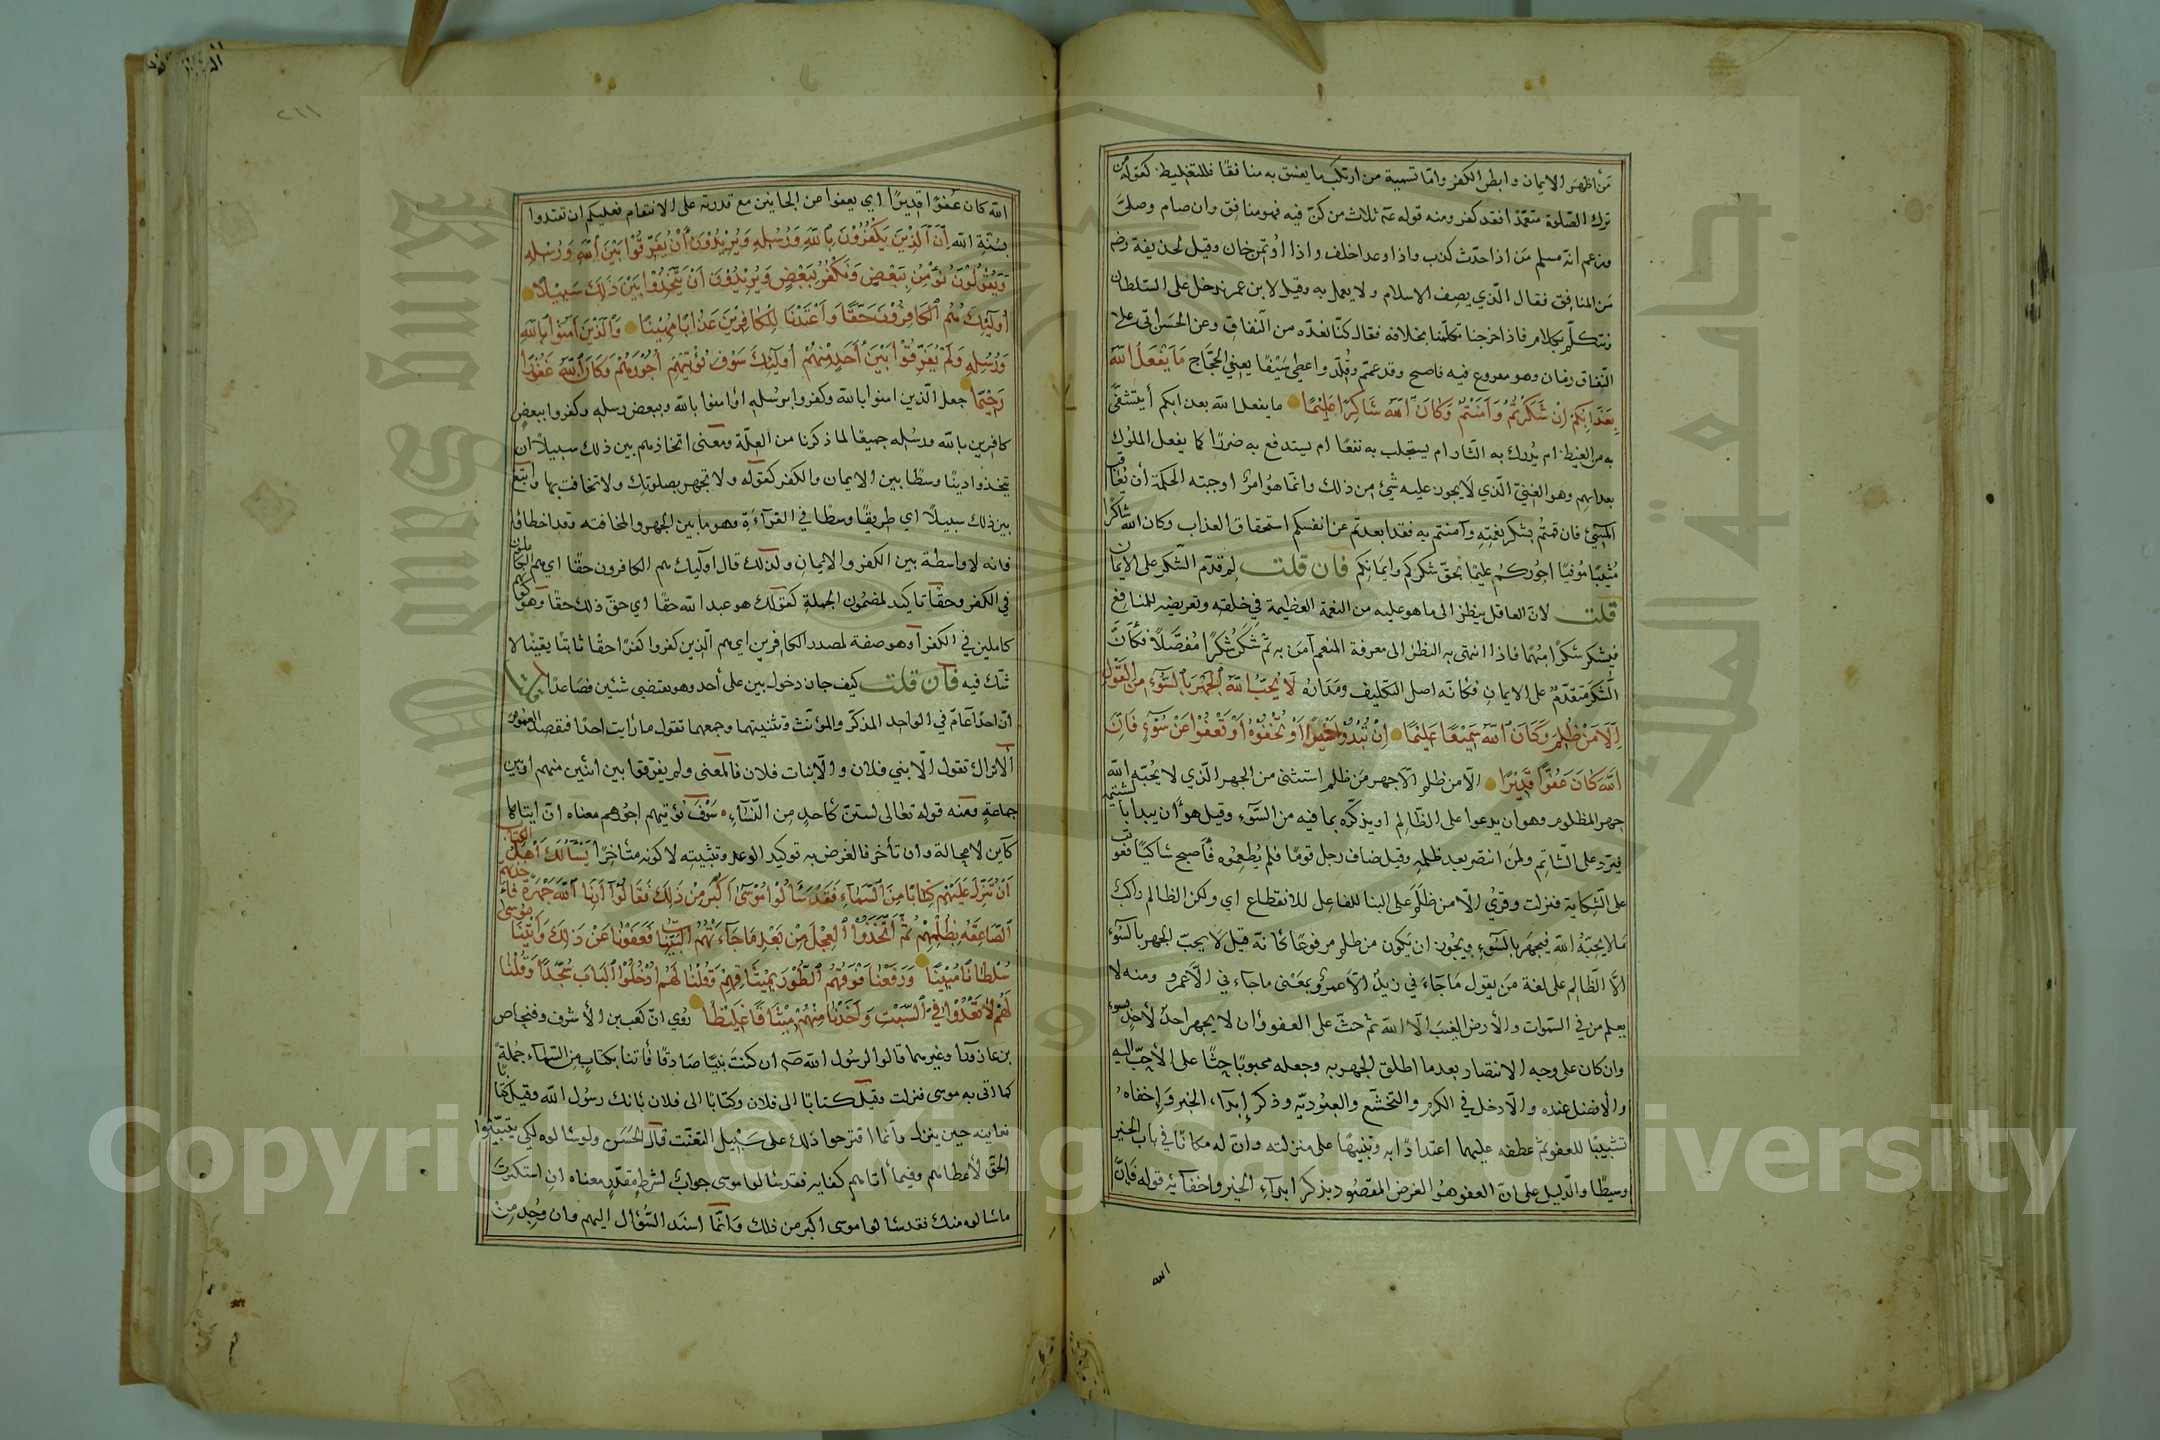 من أظهر الايمان وابطن الكفر واما تسمية من ارتكب ما يفسق به منافقا فللتغليظ كقوله من
ترك الصلوة متعمدا فقد كفر ومنه قوله عم ثلاث من كن فيه فهو منافق وان صام وصلى
وزعم انه مسلم من اذا حدث كذب واذا وعد اخلف واذا اؤتمن خان وقيل لحذيفة رضه
من المنافق فقال الذي يصف الاسلام ولا يعمل به وقيل لابن عمر ندخل على السلطان
ونتكلم بكلام فاذا خرجنا تكلمنا بخلافه فقال كنا نعده من النفاق وعن الحسن اتى على
النفاق زمان وهو مقروع فيه فاصبح وقد عمم وقلد واعطي سيفا يعني الحجاج ما يفعل الله
بعذابكم إن شكرتم وآمنتم وكان الله شاكرا عليما ما يفعل الله بعذابكم أيتشفى
به من الغيظ ام يدرك به الثار ام يستجلب به نفعا ام يستدفع به ضررا كما يفعل الملوك
بعذابهم وهو الغني الذي لا يجوز عليه شيء من ذلك وانما هو امر اوجبته الحكمة أن يعاقب
المسيء فان قمتم بشكر نعمته وآمنتم به فقد ابعدتم عن انفسكم استحقاق العذاب وكان الله شاكرا
مثيبا موفيا اجوركم عليما بحق شكركم وايمانكم فان قلت لم قدم الشكر على الايمان
قلت لان العاقل ينظر الى ما هو عليه من النعمة العظيمة في خلقه وتعريضه للمنافع
فيشكر شكرا مبهما فاذا انتهى به النظر الى معرفة المنعم آمن به ثم شكر شكرا مفصلا فكأن
الشكر متقدم على الايمان فكأنه اصل التكليف ومداره لا يحب الله الجهر بالسوء من القول
إلا من ظلم وكان الله سميعا عليما إن تبدوا خيرا أو تخفوه أو تعفوا عن سوء فإن
الله كان عفوا قديرا الا من ظلم الا جهر من ظلم استثنى من الجهر الذي لا يحبه الله
جهر المظلوم وهو ان يدعوا على الظالم او يذكره بما فيه من السوء وقيل هو أن يبدأ بالشتيمة
فيرد على الشاتم ولمن انتصر بعد ظلمه وقيل ضاف رجل قوما فلم يطعموه فأصبح شاكيا فعوتب
على الشكاية فنزلت وقرئ الا من ظلم على البنا للفاعل للانقطاع اي ولكن الظالم راكب
ما لا يحبه الله فيجهر بالسوء ويجوز ان يكون من ظلم مرفوعا كانه قيل لا يحب الجهر بالسوء
الا الظالم على لغة من يقول ما جاءني زيد الا عمرو بمعنى ما جاءني الا عمرو ومنه لا
يعلم من في السموات والأرض الغيب الا الله ثم حث على العفو وان لا يجهر احد لأحد بسوء
وان كان على وجه الانتصار بعدما اطلق الجهر به وجعله محبوبا حثا على الأحب اليه
والأفضل عنده والادخل في الكرم والتخشع والعبودية وذكر إبداء الخير وإخفاه
تشبيبا للعفو ثم عطفه عليهما اعتدادا به وتنبيها على منزلته وان له مكانا في باب الخير
وسيطا والدليل على ان العفو هو الغرض المقصود بذكر ابداء الخير واخفائه قوله فان
الله
٢١١
الله كان عفوا قديرا اي يعفوا عن الجانين مع قدرته على الانتقام فعليكم ان تقتدوا
بسنة الله إن الذين يكفرون بالله ورسله ويريدون أن يفرقوا بين الله ورسله
ويقولون نؤمن ببعض ونكفر ببعض ويريدون أن يتخذوا بين ذلك سبيلا
أولئك هم الكافرون حقا وأعتدنا للكافرين عذابا مهينا والذين آمنوا بالله
ورسله ولم يفرقوا بين أحد منهم أولئك سوف نؤتيهم أجورهم وكان الله غفورا
رحيما جعل الذين امنوا بالله وكفروا برسله او امنوا بالله وببعض رسله وكفروا ببعض
كافرين بالله ورسله جميعا لما ذكرنا من العلة ومعنى اتخاذهم بين ذلك سبيلا ان
يتخذوا دينا وسطا بين الايمان والكفر كقوله ولا تجهر بصلوتك ولا تخافت بها وابتغ
بين ذلك سبيلا اي طريقا وسطا في القراءة وهو ما بين الجهر والمخافته وقد اخطاوا
فانه لا واسطة بين الكفر والايمان ولذلك قال اولئك هم الكافرون حقا اي هم الكاملون
في الكفر وحقا تاكيد لمضمون الجملة كقولك هو عبد الله حقا اي حق ذلك حقا وهو كونهم
كاملين في الكفر أو هو صفة لمصدر الكافرين اي هم الذين كفروا كفرا حقا ثابتا يقينا لا
شك فيه فان قلت كيف جاز دخول بين على أحد وهو يقتضي شيئين فصاعدا قلت
ان احدا عام في الواحد المذكر والمؤنث وتثنيتهما وجمعهما تقول ما رايت احدا فتقصد العموم
الا تراك تقول الا بني فلان والا بنات فلان فالمعنى ولم يفرقوا بين اثنين منهم او بين
جماعة ومنه قوله تعالى لستن كأحد من النساء سوف نؤتيهم اجورهم معناه ان ايتاءها
كاين لا محالة وان تأخر فالغرض به توكيد الوعد وتثبيته لا كونه متاخرا يسألك أهل الكتاب
أن تنزل عليهم كتابا من السماء فقد سألوا موسى أكبر من ذلك فقالوا أرنا الله جهرة فأخذتهم
الصاعقة بظلمهم ثم اتخذوا العجل من بعد ما جاءتهم البينات فعفونا عن ذلك وآتينا موسى
سلطانا مبينا ورفعنا فوقهم الطور بميثاقهم وقلنا لهم ادخلوا الباب سجدا وقلنا
لهم لا تعدوا في السبت وأخذنا منهم ميثاقا غليظا روي ان كعب بن الأشرف وفنحاص
بن عازورا وغيرهما قالوا لرسول الله صم ان كنت نبيا صادقا فأتنا بكتاب من السماء جملة
كما اتى به موسى فنزلت وقيل كتابا الى فلان وكتابا الى فلان بانك رسول الله وقيل كتابا
نعاينه حين ينزل وانما اقترحوا ذلك على سبيل التعنت قال الحسن ولو سألوه لكي يتبينوا
الحق لأعطاهم وفيما أتاهم كفاية فقد سألوا موسى جواب لشرط مقدر معناه ان استكبرت
ما سألوه منك فقد سألوا موسى اكبر من ذلك وانما اسند السؤال اليهم وان وجد من
Copyright © King Saud University